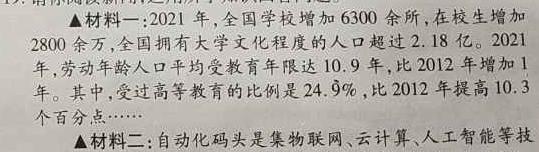 ▲材料一:2021 年,全国学校增加 6300 余所,在校生增加
2800 余万,全国拥有大学文化程度的人口超过 2.18 亿。2021
年,劳动年龄人口平均受教育年限达 10.9 年,比 2012 年增加 1
年。其中,受过高等教育的比例是 24.9%,比 2012 年提高 10.3
个百分点……
▲材料二:自动化码头是集物联网、云计算、人工智能等技